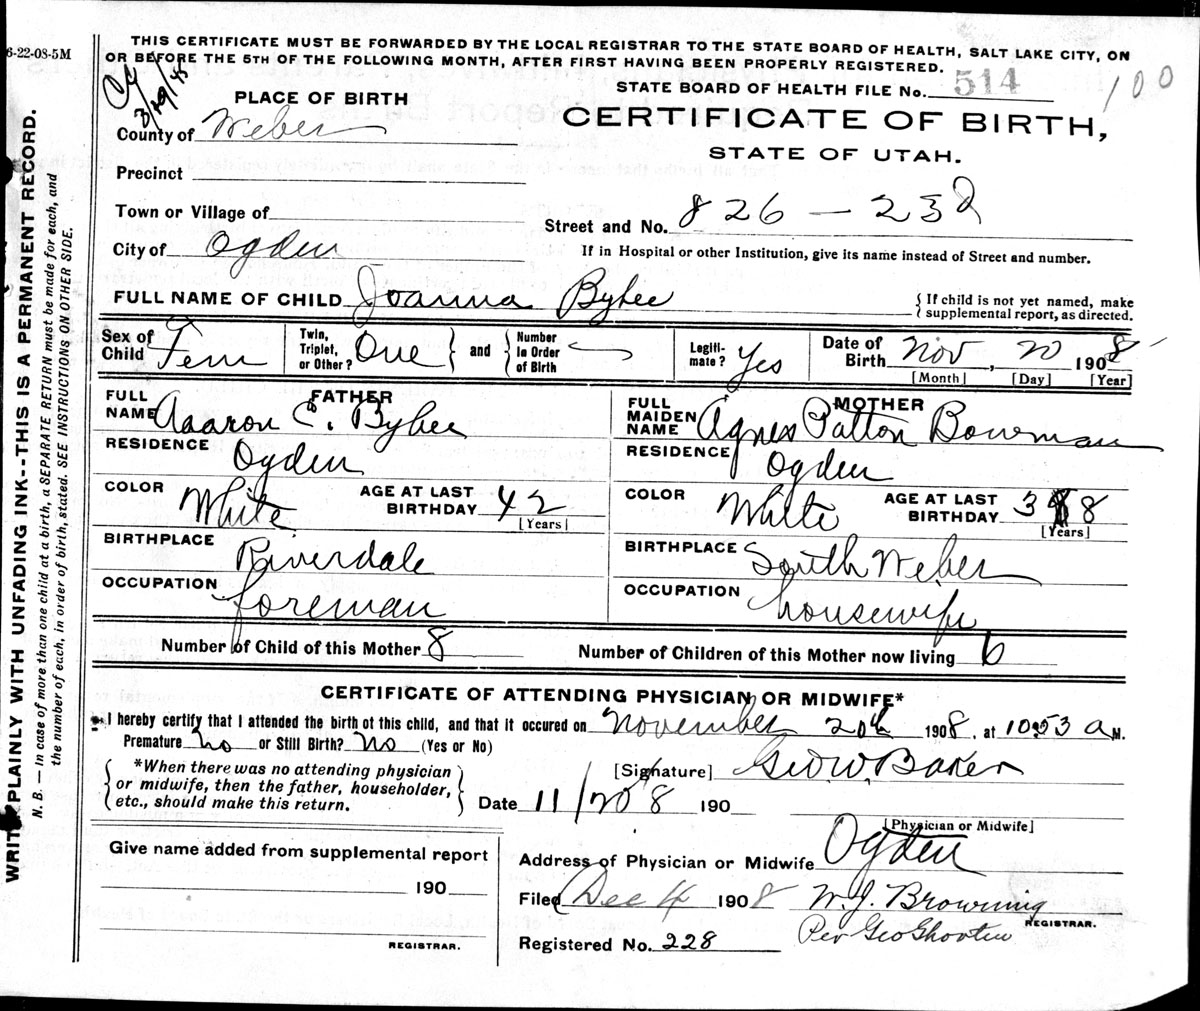 6-22-08-5M
THIS CERTIFICATE MUST BE FORWARDED BY THE LOCAL REGISTRAR TO THE STATE BOARD OF HEALTH, SALT LAKE CITY, ON
OR BEFORE THE 5TH OF THE FOLLOWING MONTH, AFTER FIRST HAVING BEEN PROPERLY REGISTERED.
STATE BOARD OF HEALTH FILE No. 514
100
3/29/45
PLACE OF BIRTH
CERTIFICATE OF BIRTH,
STATE OF UTAH.
County of Weber
Precinct
Town or Village of
Street and No. 826 — 23d
City of Ogden
If in Hospital or other Institution, give its name instead of Street and number.
FULL NAME OF CHILD Joanna Bybee
{ If child is not yet named, make
supplemental report, as directed.
Sex of Child Fem
Twin, Triplet, or Other? One } and { Number in Order of Birth
Legiti-mate? Yes
Date of Birth Nov, 20 1908
[Month] [Day] [Year]
FATHER
FULL NAME Aaaron C. Bybee
RESIDENCE Ogden
COLOR White AGE AT LAST BIRTHDAY 42
[Years]
BIRTHPLACE Riverdale
OCCUPATION foreman
MOTHER
FULL MAIDEN NAME Agnes Patton Bowman
RESIDENCE Ogden
COLOR White AGE AT LAST BIRTHDAY 38
[Years]
BIRTHPLACE South Weber
OCCUPATION housewife
Number of Child of this Mother 8 Number of Children of this Mother now living 6
CERTIFICATE OF ATTENDING PHYSICIAN OR MIDWIFE*
I hereby certify that I attended the birth of this child, and that it occured on November 20th 1908, at 10:53 a M.
Premature no or Still Birth? no (Yes or No)
{ *When there was no attending physician
or midwife, then the father, householder,
etc., should make this return. }
[Signature] Geo W. Baker
Date 11/20/8 190
[Physician or Midwife]
Give name added from supplemental report
190
REGISTRAR.
Address of Physician or Midwife Ogden
Filed Dec 4 1908 W. J. Browning
REGISTRAR.
Per Geo Shorten
Registered No. 228
WRITE PLAINLY WITH UNFADING INK--THIS IS A PERMANENT RECORD.
N. B. — In case of more than one child at a birth, a SEPARATE RETURN must be made for each, and
the number of each, in order of birth, stated. SEE INSTRUCTIONS ON OTHER SIDE.